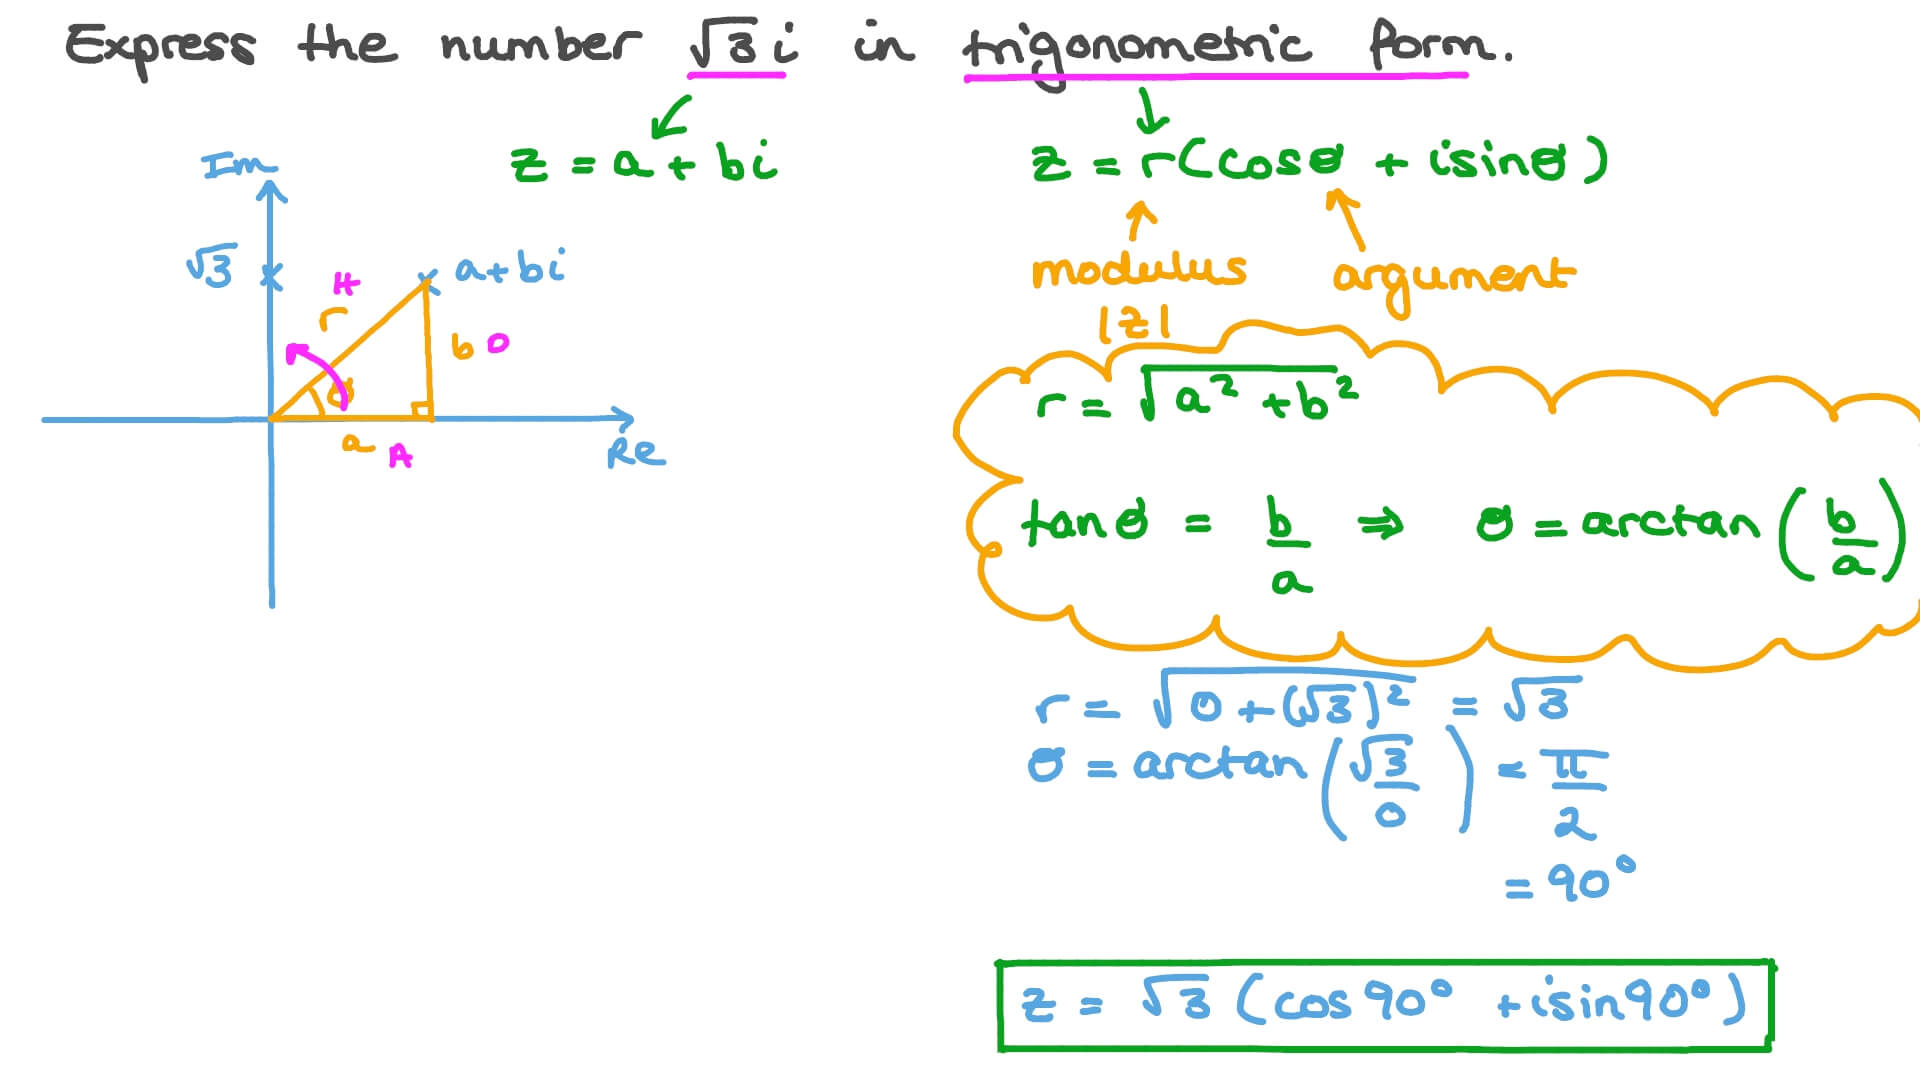 Express the number √3 i in trigonometric form.
z = a + bi
z = r(cosθ + isinθ)
modulus
|z|
argument
Im
√3
a+bi
H
r
b O
θ
a A
Re
r = √(a² + b²)
tanθ = b/a ⇒ θ = arctan(b/a)
r = √(0 + (√3)²) = √3
θ = arctan(√3/0) = π/2
= 90°
z = √3 (cos90° + isin90°)